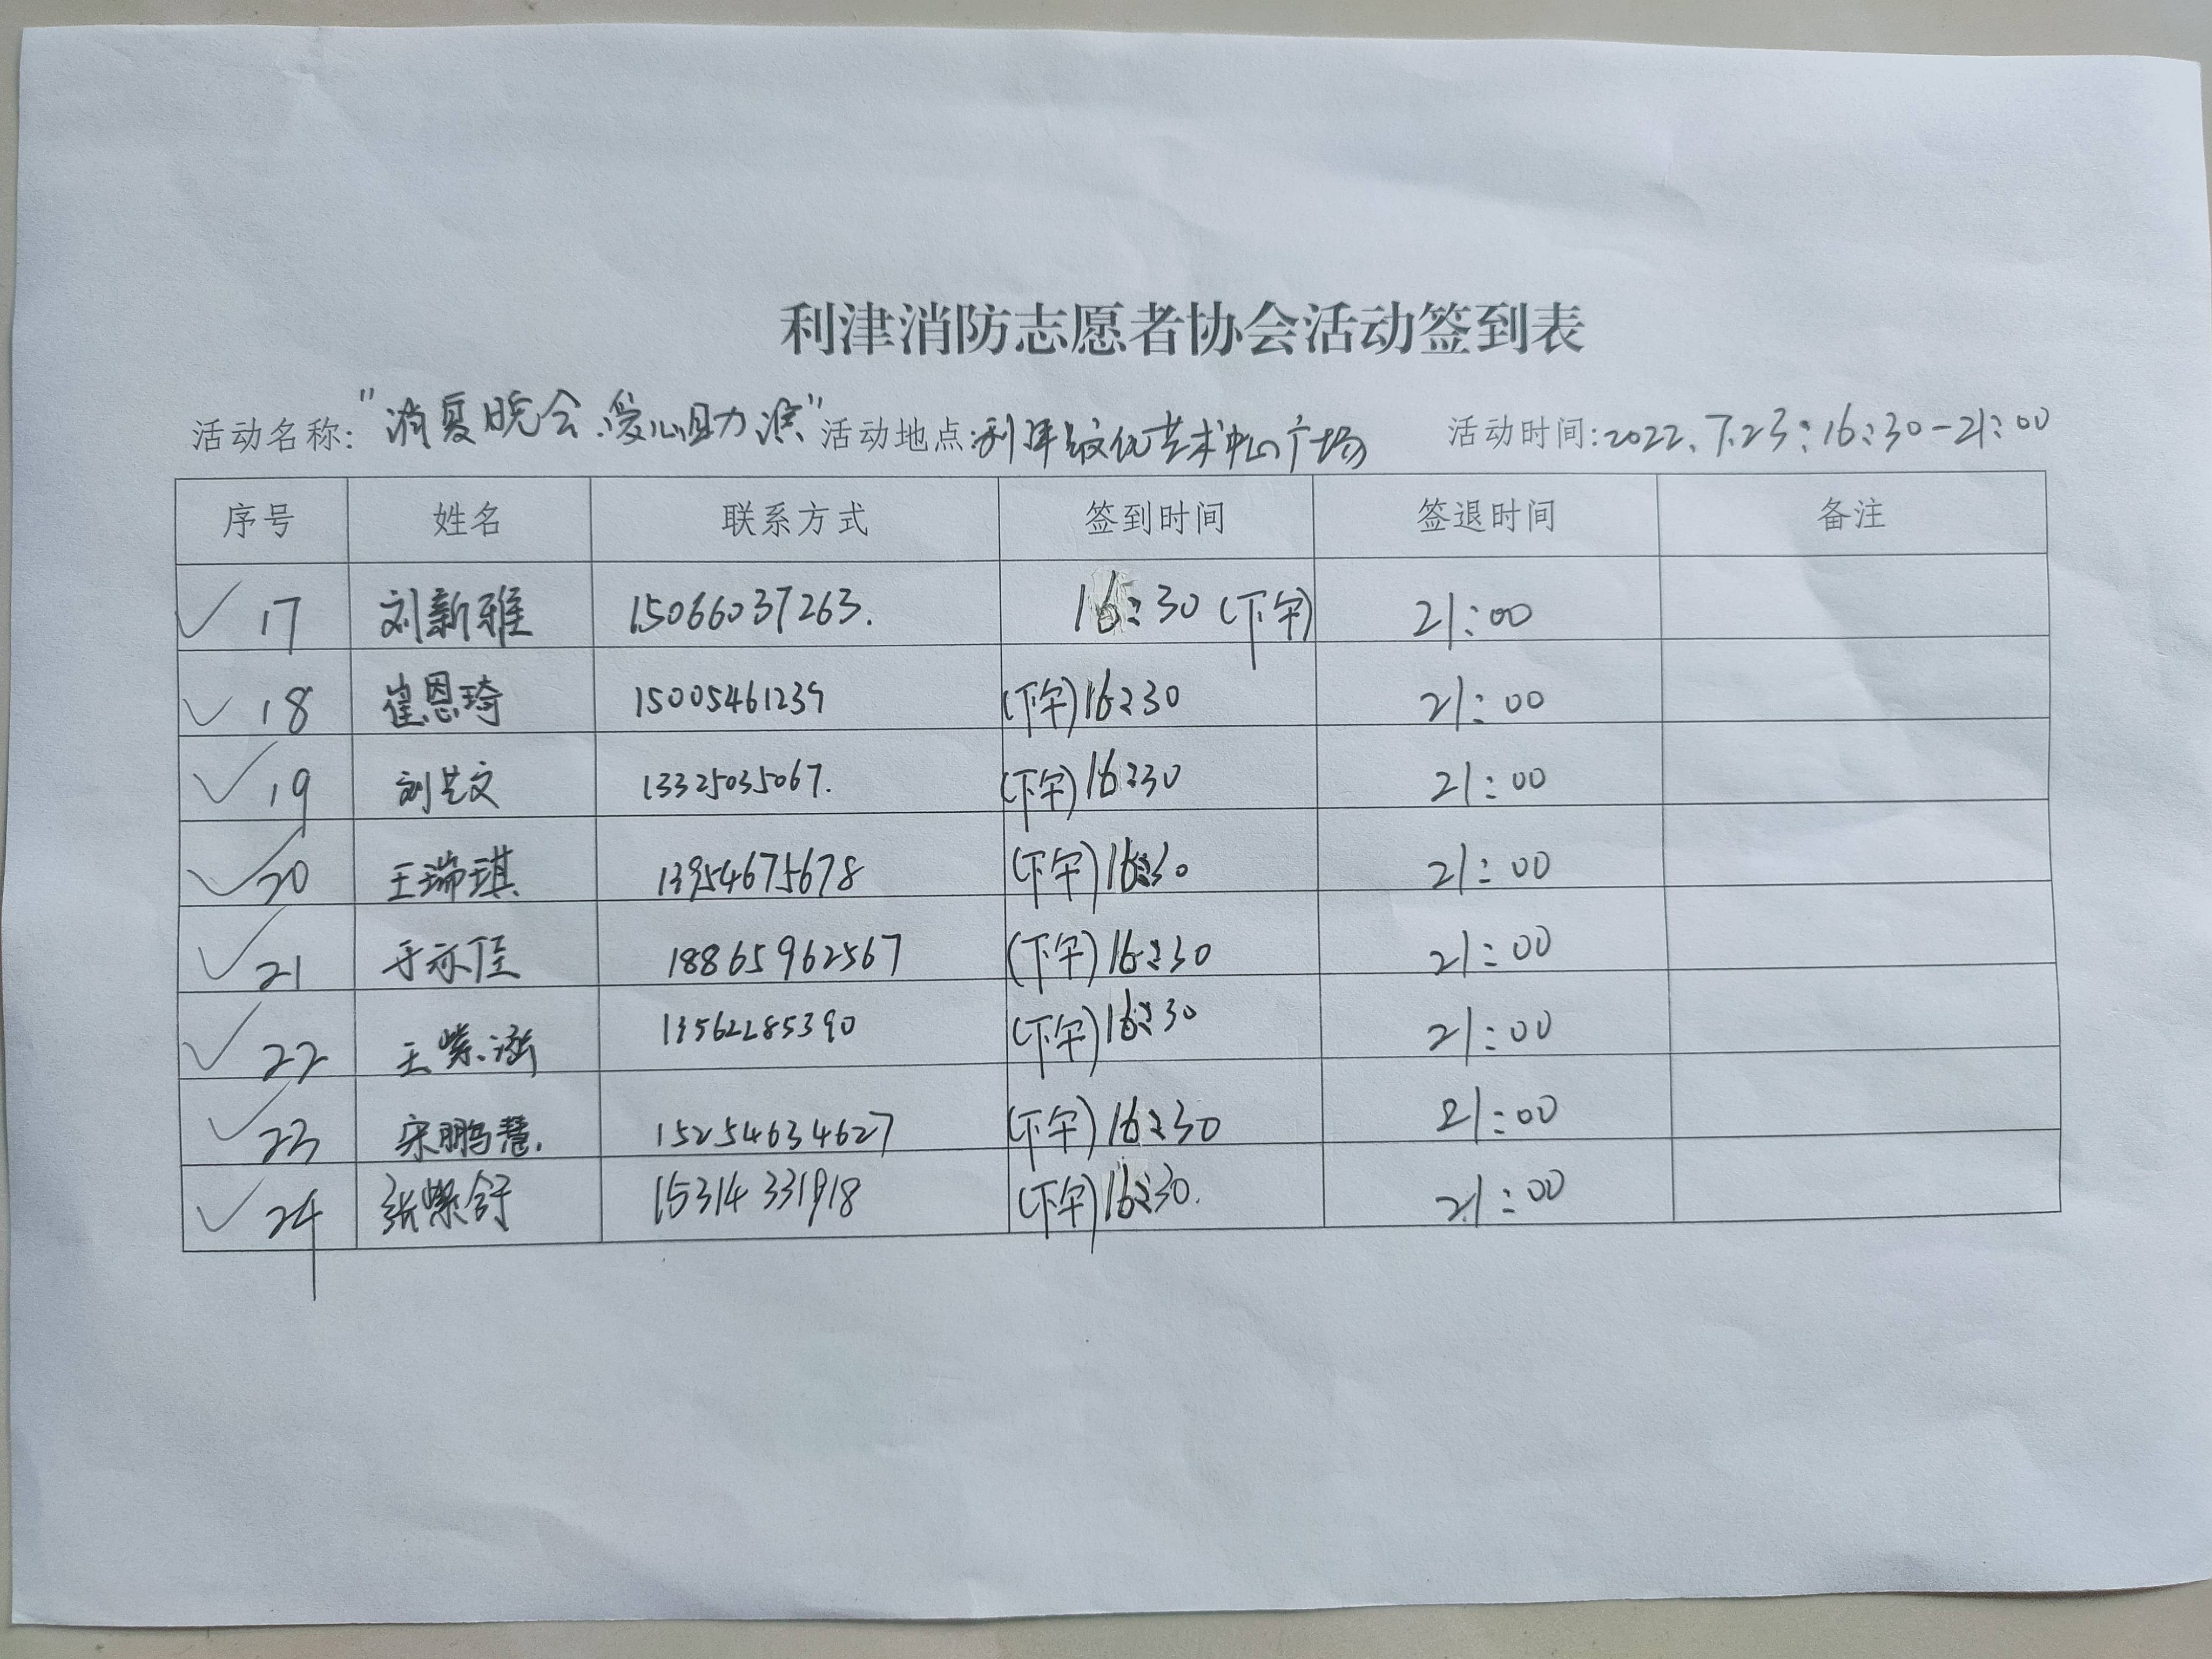 利津消防志愿者协会活动签到表
活动名称:"消夏晚会.爱心助演" 活动地点:利津文化艺术中心广场 活动时间:2022.7.23:16:30-21:00
序号 姓名 联系方式 签到时间 签退时间 备注
✓ 17 刘新雅 15066037263. 16:30 (下午) 21:00
✓ 18 崔恩琦 15005461239 (下午)16:30 21:00
✓ 19 刘艺文 13325035067. (下午)16:30 21:00
✓ 20 王瑞琪 13954675678 (下午)16:30 21:00
✓ 21 于亦佳 18865962567 (下午)16:30 21:00
✓ 22 王紫涵 13562285390 (下午)16:30 21:00
✓ 23 宋鹏慧. 15254634627 (下午)16:30 21:00
✓ 24 张紫舒 15314331918 (下午)16:30. 21:00